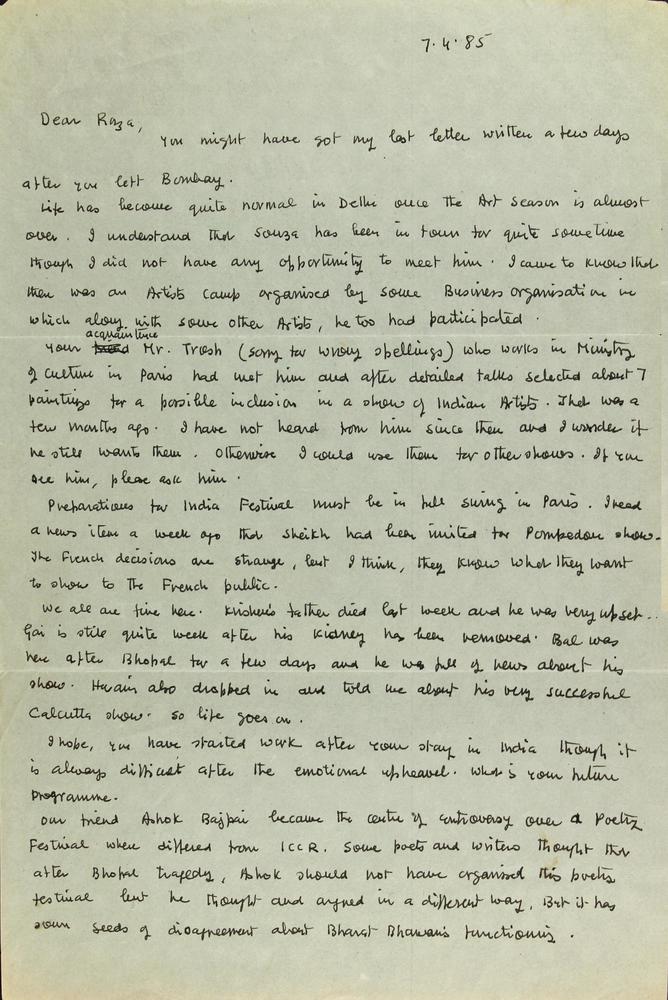 7.4.85
Dear Raza,
You might have got my last letter written a few days
after you left Bombay.
Life has become quite normal in Delhi once the Art Season is almost
over. I understand that Souza has been in town for quite sometime
though I did not have any opportunity to meet him. I came to know that
there was an Artists Camp organised by some Business organisation in
which along with some other Artists, he too had participated.
acquaintance
Your Mr. Trosh (sorry for wrong spellings) who works in Ministry
of Culture in Paris had met him and after detailed talks selected about 7
paintings for a possible inclusion in a show of Indian Artists. That was a
few months ago. I have not heard from him since then and I wonder if
he still wants them. Otherwise I could use them for other shows. If you
see him, please ask him.
Preparations for India Festival must be in full swing in Paris. I read
a news item a week ago that Sheikh had been invited for Pompedou show.
The French decisions are strange, but I think, they know what they want
to show to the French public.
We all are fine here. Krishen's father died last week and he was very upset..
Gai is still quite week after his kidney has been removed. Bal was
here after Bhopal for a few days and he was full of news about his
show. Husain also dropped in and told me about his very successful
Calcutta show. So life goes on.
I hope, you have started work after your stay in India though it
is always difficult after the emotional upheavel. What's your future
programme.
Our friend Ashok Bajpai became the centre of controversy over a Poetry
Festival when differed from ICCR. Some poets and writers thought that
after Bhopal tragedy, Ashok should not have organised this poetry
festival but he thought and argued in a different way, But it has
sown seeds of disagreement about Bharat Bhawan's functioning.